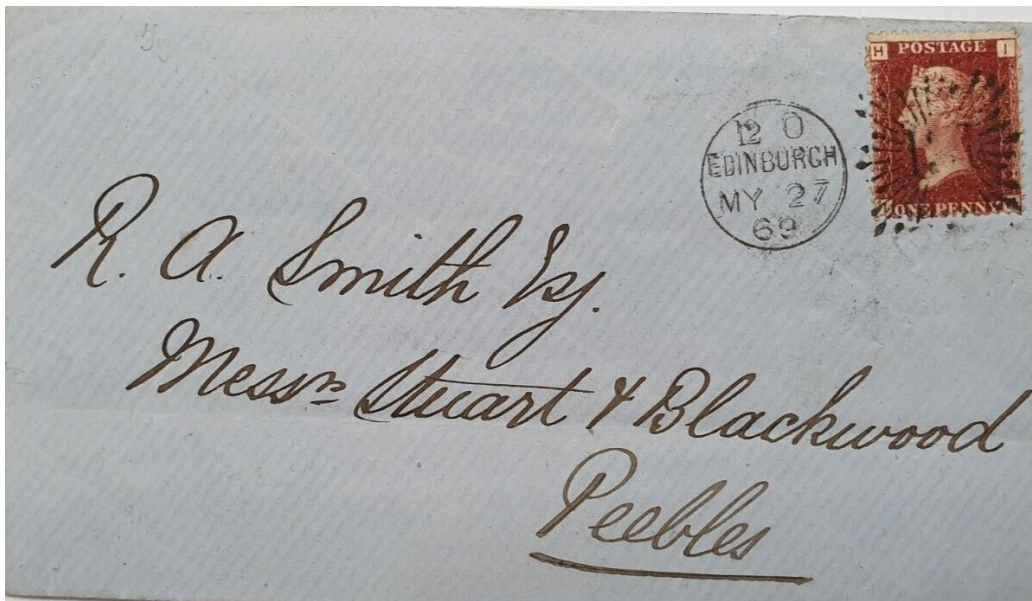 H POSTAGE I
ONE PENNY
12 O
EDINBURGH
MY 27
69
R. A. Smith Esq.
Messrs Stuart & Blackwood
Peebles